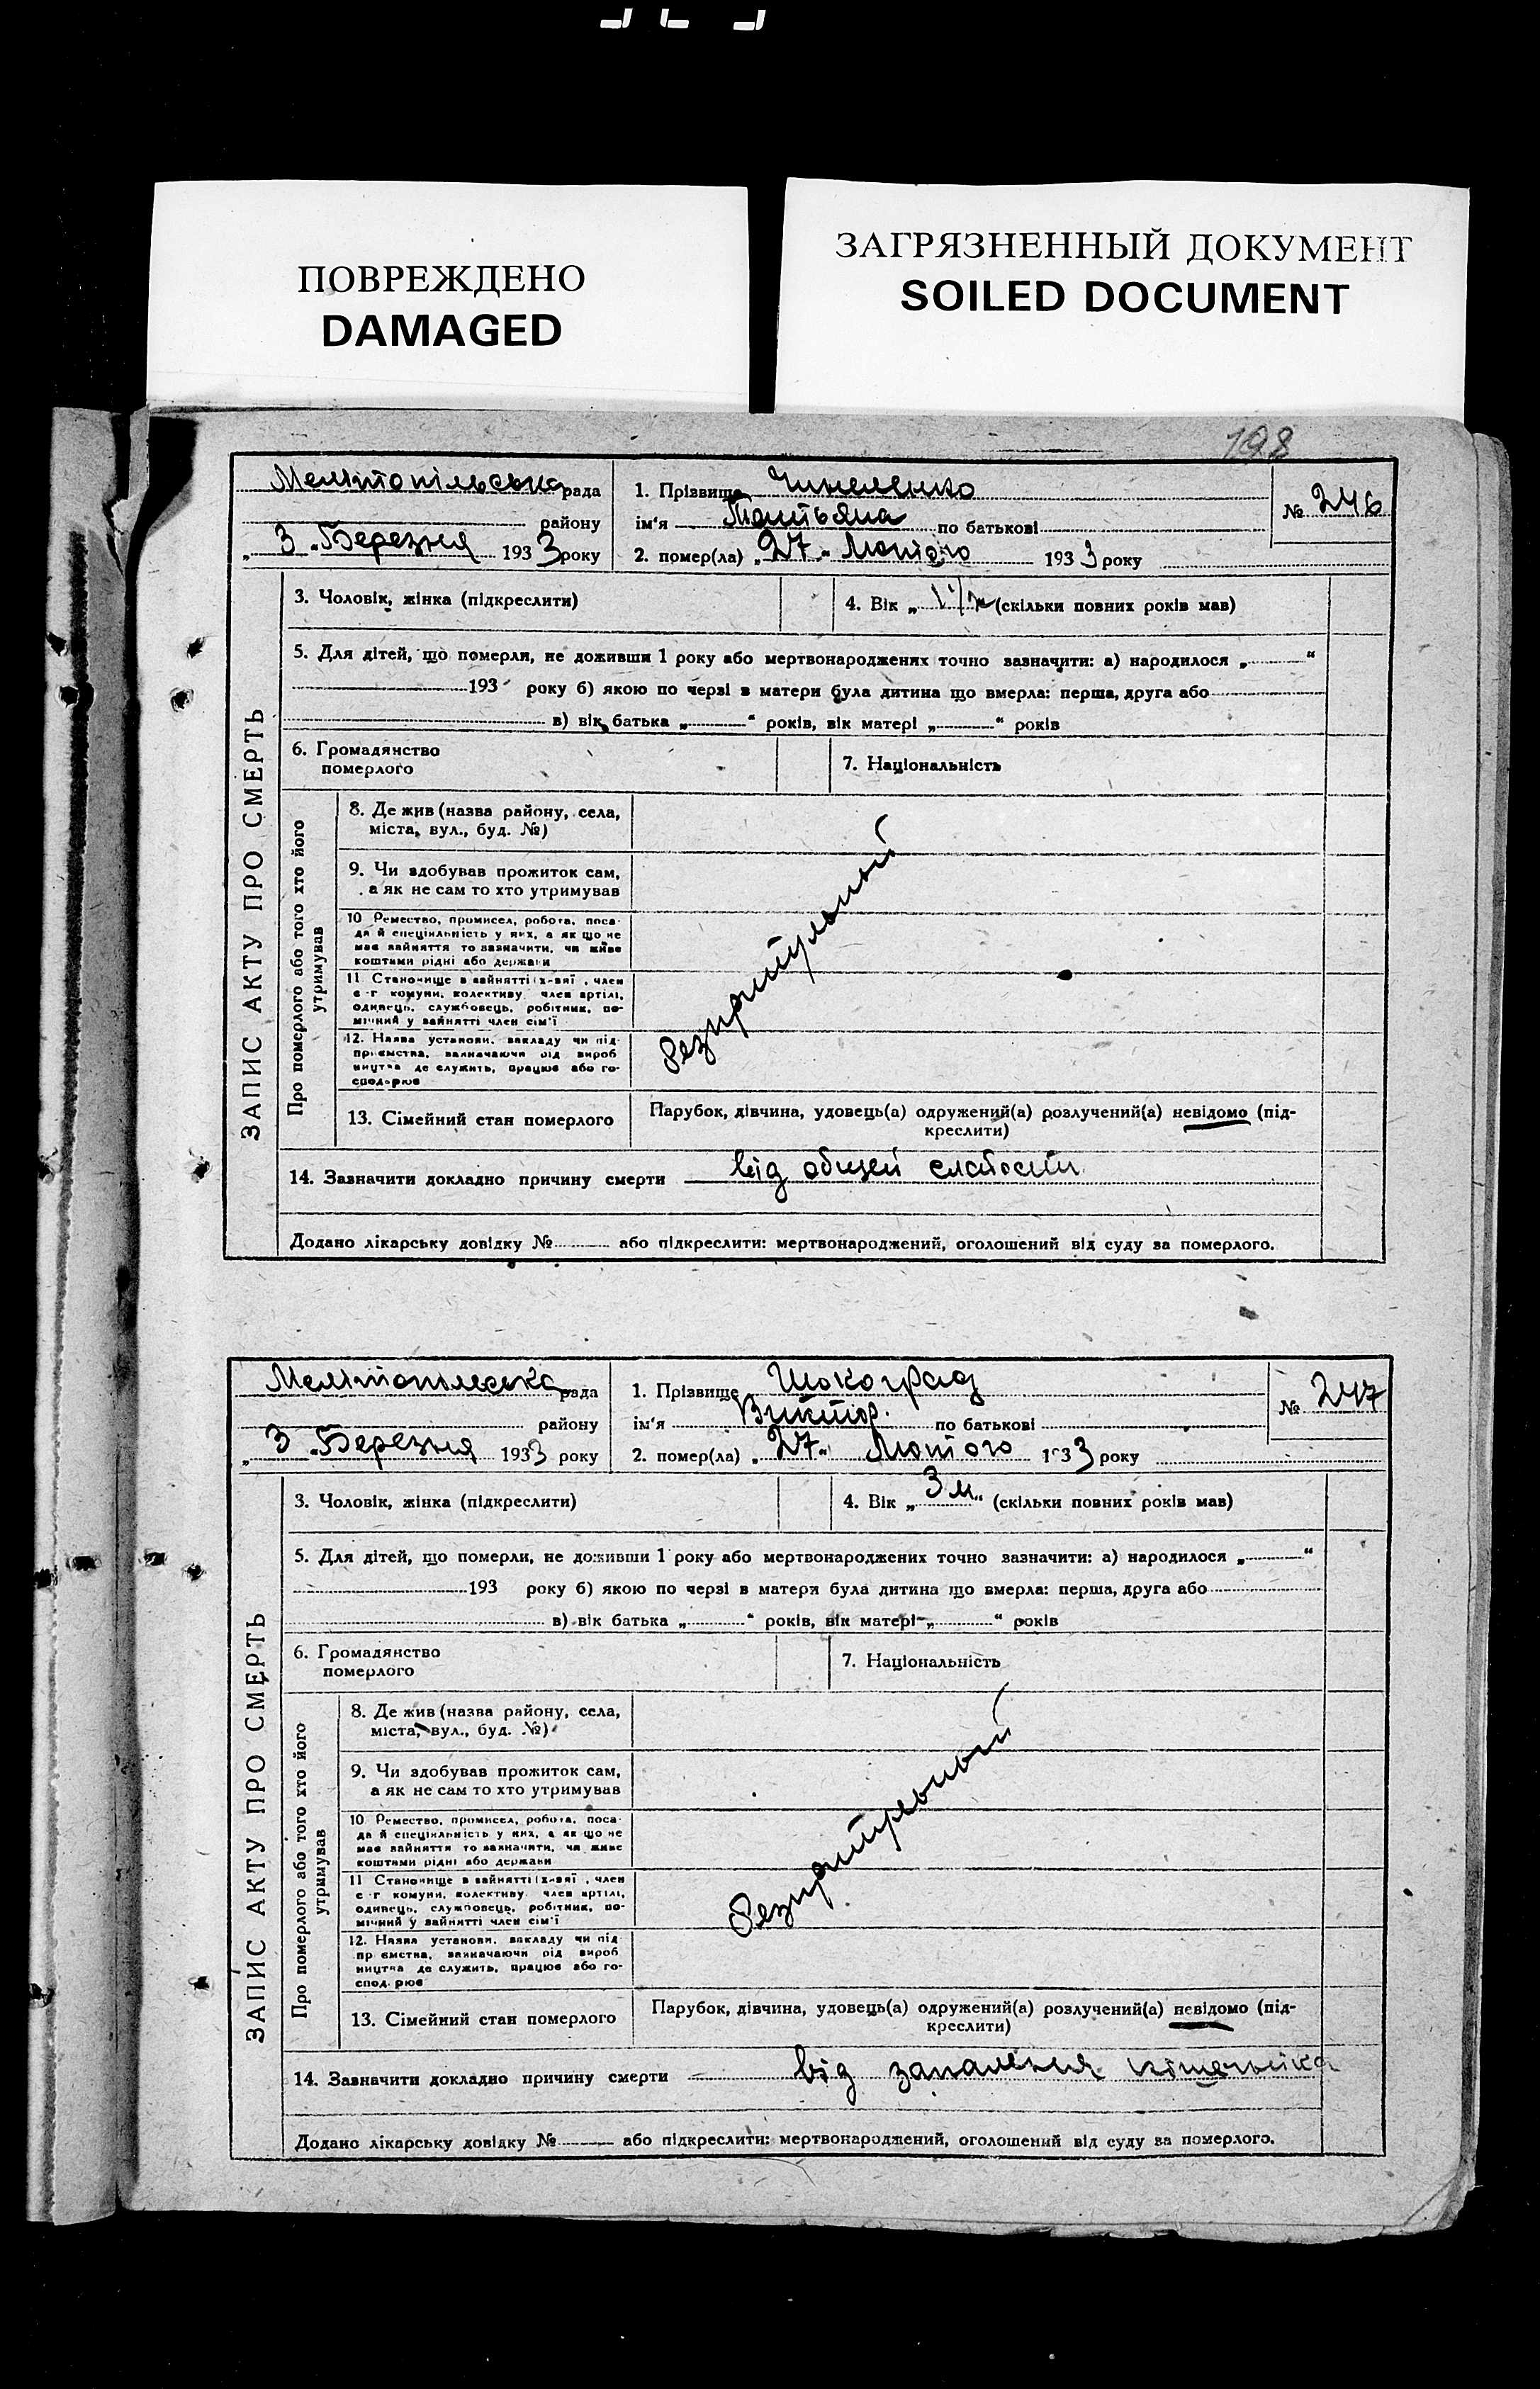 ПОВРЕЖДЕНО
DAMAGED
ЗАГРЯЗНЕННЫЙ ДОКУМЕНТ
SOILED DOCUMENT
198
Мелітопільська рада
району
„ 3 " Березня 1933 року
1. Прізвище Чинеленко
ім'я Татьяна по батькові
2. помер(ла) „ 27 " Лютого 1933 року
№ 246
3. Чоловік, жінка (підкреслити)
4. Вік „ 1 1/2 (скільки повних років мав)
5. Для дітей, що померли, не доживши 1 року або мертвонароджених точно зазначити: а) народилося „ “
193 року б) якою по черзі в матери була дитина що вмерла: перша, друга або
в) вік батька „ “ років, вік матері „ “ років
6. Громадянство
померлого
7. Національність
ЗАПИС АКТУ ПРО СМЕРТЬ
Про померлого або того хто його
утримував
8. Де жив (назва району, села,
міста, вул., буд. №)
9. Чи здобував прожиток сам,
а як не сам то хто утримував
10 Ремество, промисел, робота, поса-
да й спеціяльність у них, а як що не
має зайняття то зазначити, чи живе
коштами рідні або держави
11 Становище в зайнятті хазяї, член
с-г комуни, колективу член артілі,
одинець, службовець, робітник, по-
мічний у зайнятті член сім'ї
12. Назва установи, закладу чи під-
приємства, зазначаючи від вироб
ництва де служить, працює або го-
сподарює
безпритульный
13. Сімейний стан померлого
Парубок, дівчина, удовець(а) одружений(а) розлучений(а) невідомо (під-
креслити)
14. Зазначити докладно причину смерти від общей слабости
Додано лікарську довідку № або підкреслити: мертвонароджений, оголошений від суду за померлого.
Мелітопольська рада
району
„ 3 " Березня 1933 року
1. Прізвище Шокоград
ім'я Виктор. по батькові
2. помер(ла) „ 27 " Лютого 1933 року
№ 247
3. Чоловік, жінка (підкреслити)
4. Вік „ 3 м “ (скільки повних років мав)
5. Для дітей, що померли, не доживши 1 року або мертвонароджених точно зазначити: а) народилося „ “
193 року б) якою по черзі в матери була дитина що вмерла: перша, друга або
в) вік батька „ “ років, вік матері „ “ років
6. Громадянство
померлого
7. Національність
ЗАПИС АКТУ ПРО СМЕРТЬ
Про померлого або того хто його
утримував
8. Де жив (назва району, села,
міста, вул., буд. №)
9. Чи здобував прожиток сам,
а як не сам то хто утримував
10 Ремество, промисел, робота, поса-
да й спеціяльність у них, а як що не
має зайняття то зазначити, чи живе
коштами рідні або держави
11 Становище в зайнятті хазяї, член
с-г комуни, колективу член артілі,
одинець, службовець, робітник, по-
мічний у зайнятті член сім'ї
12. Назва установи, закладу чи під
приємства, зазначаючи від вироб
ництва де служить, працює або го-
сподарює
безпритульный
13. Сімейний стан померлого
Парубок, дівчина, удовець(а) одружений(а) розлучений(а) невідомо (під-
креслити)
14. Зазначити докладно причину смерти від запалення кішечника
Додано лікарську довідку № або підкреслити: мертвонароджений, оголошений від суду за померлого.